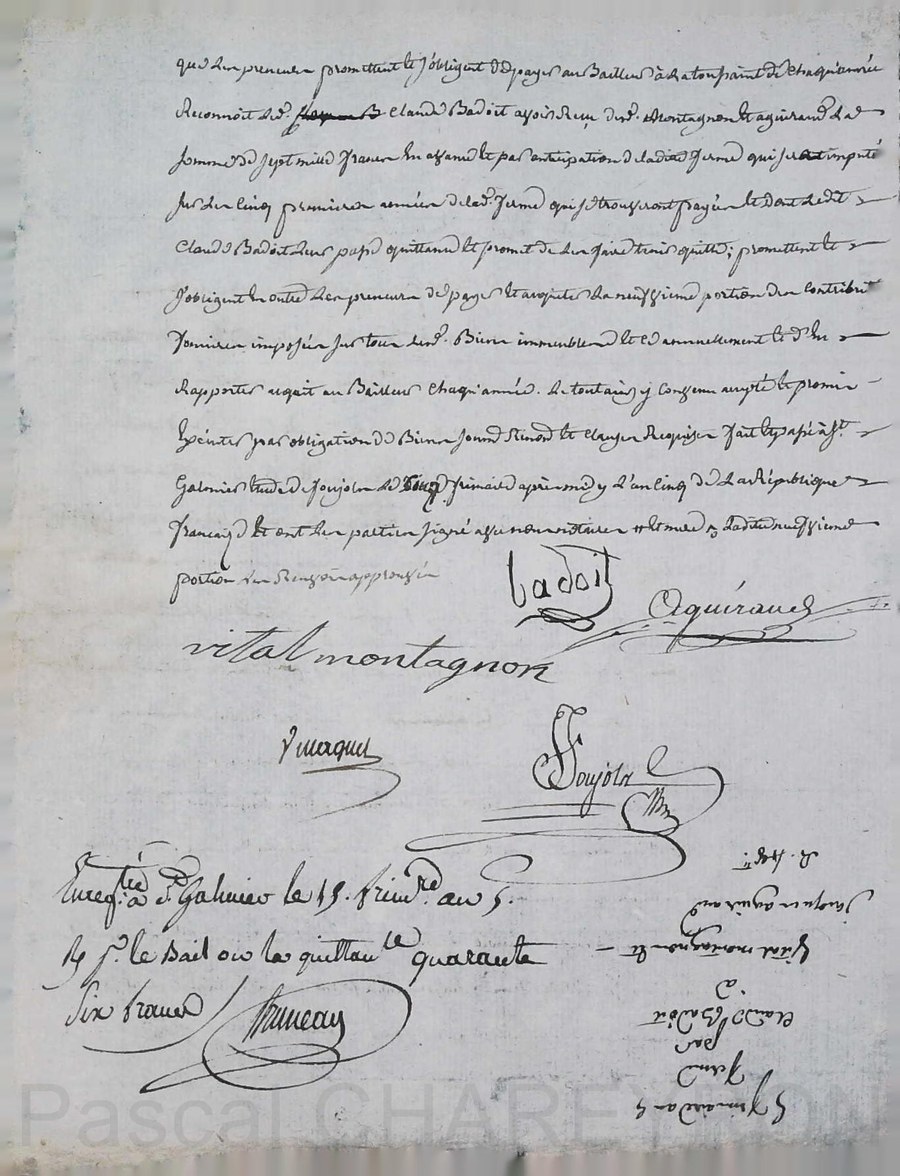 que les preneurs promettent et s'obligent de payer au Bailleur à la toussaint de chaqu'année
Reconnoit led. Claude Badoit avoir Reçu desd. Montagnon et aguiraud la
somme de sept mille francs en avance et par anticipation de lad ferme qui sera imputé
sur les cinq premieres années de lad. ferme qui se trouveront payées et dont ledit
Claude Badoit leurs passe quittance et promet de les faire tenir quitte; promettent et
s'obligent en outre les preneurs de payer et acquiter la neufvieme portion des contributions
foncieres imposées sur tous lesd. Biens immeubles et ce annuellement et d'en
Rapporter acquit au Bailleur chaqu'année. Le tout ainsi convenu accepté et promis
Exécuter par obligation de Biens et clauses Requises fait et passé à St.
Galmier Etude de Soujols le frimaire après midy l'an cinq de la République
française et ont les parties signé avec nous notaires ladite neufvieme
portion approuvés
badoit
Aguiraud
vital montagnon
Soujols
Enregtré à St Galmier le 15. frimre. an 5.
le Bail ou la quittance quarante
six francs
Bruneau
5 frimaire an 5
Ferme
par
Claude Badoit
à
Vital montagnon et
Jacques aguiraud